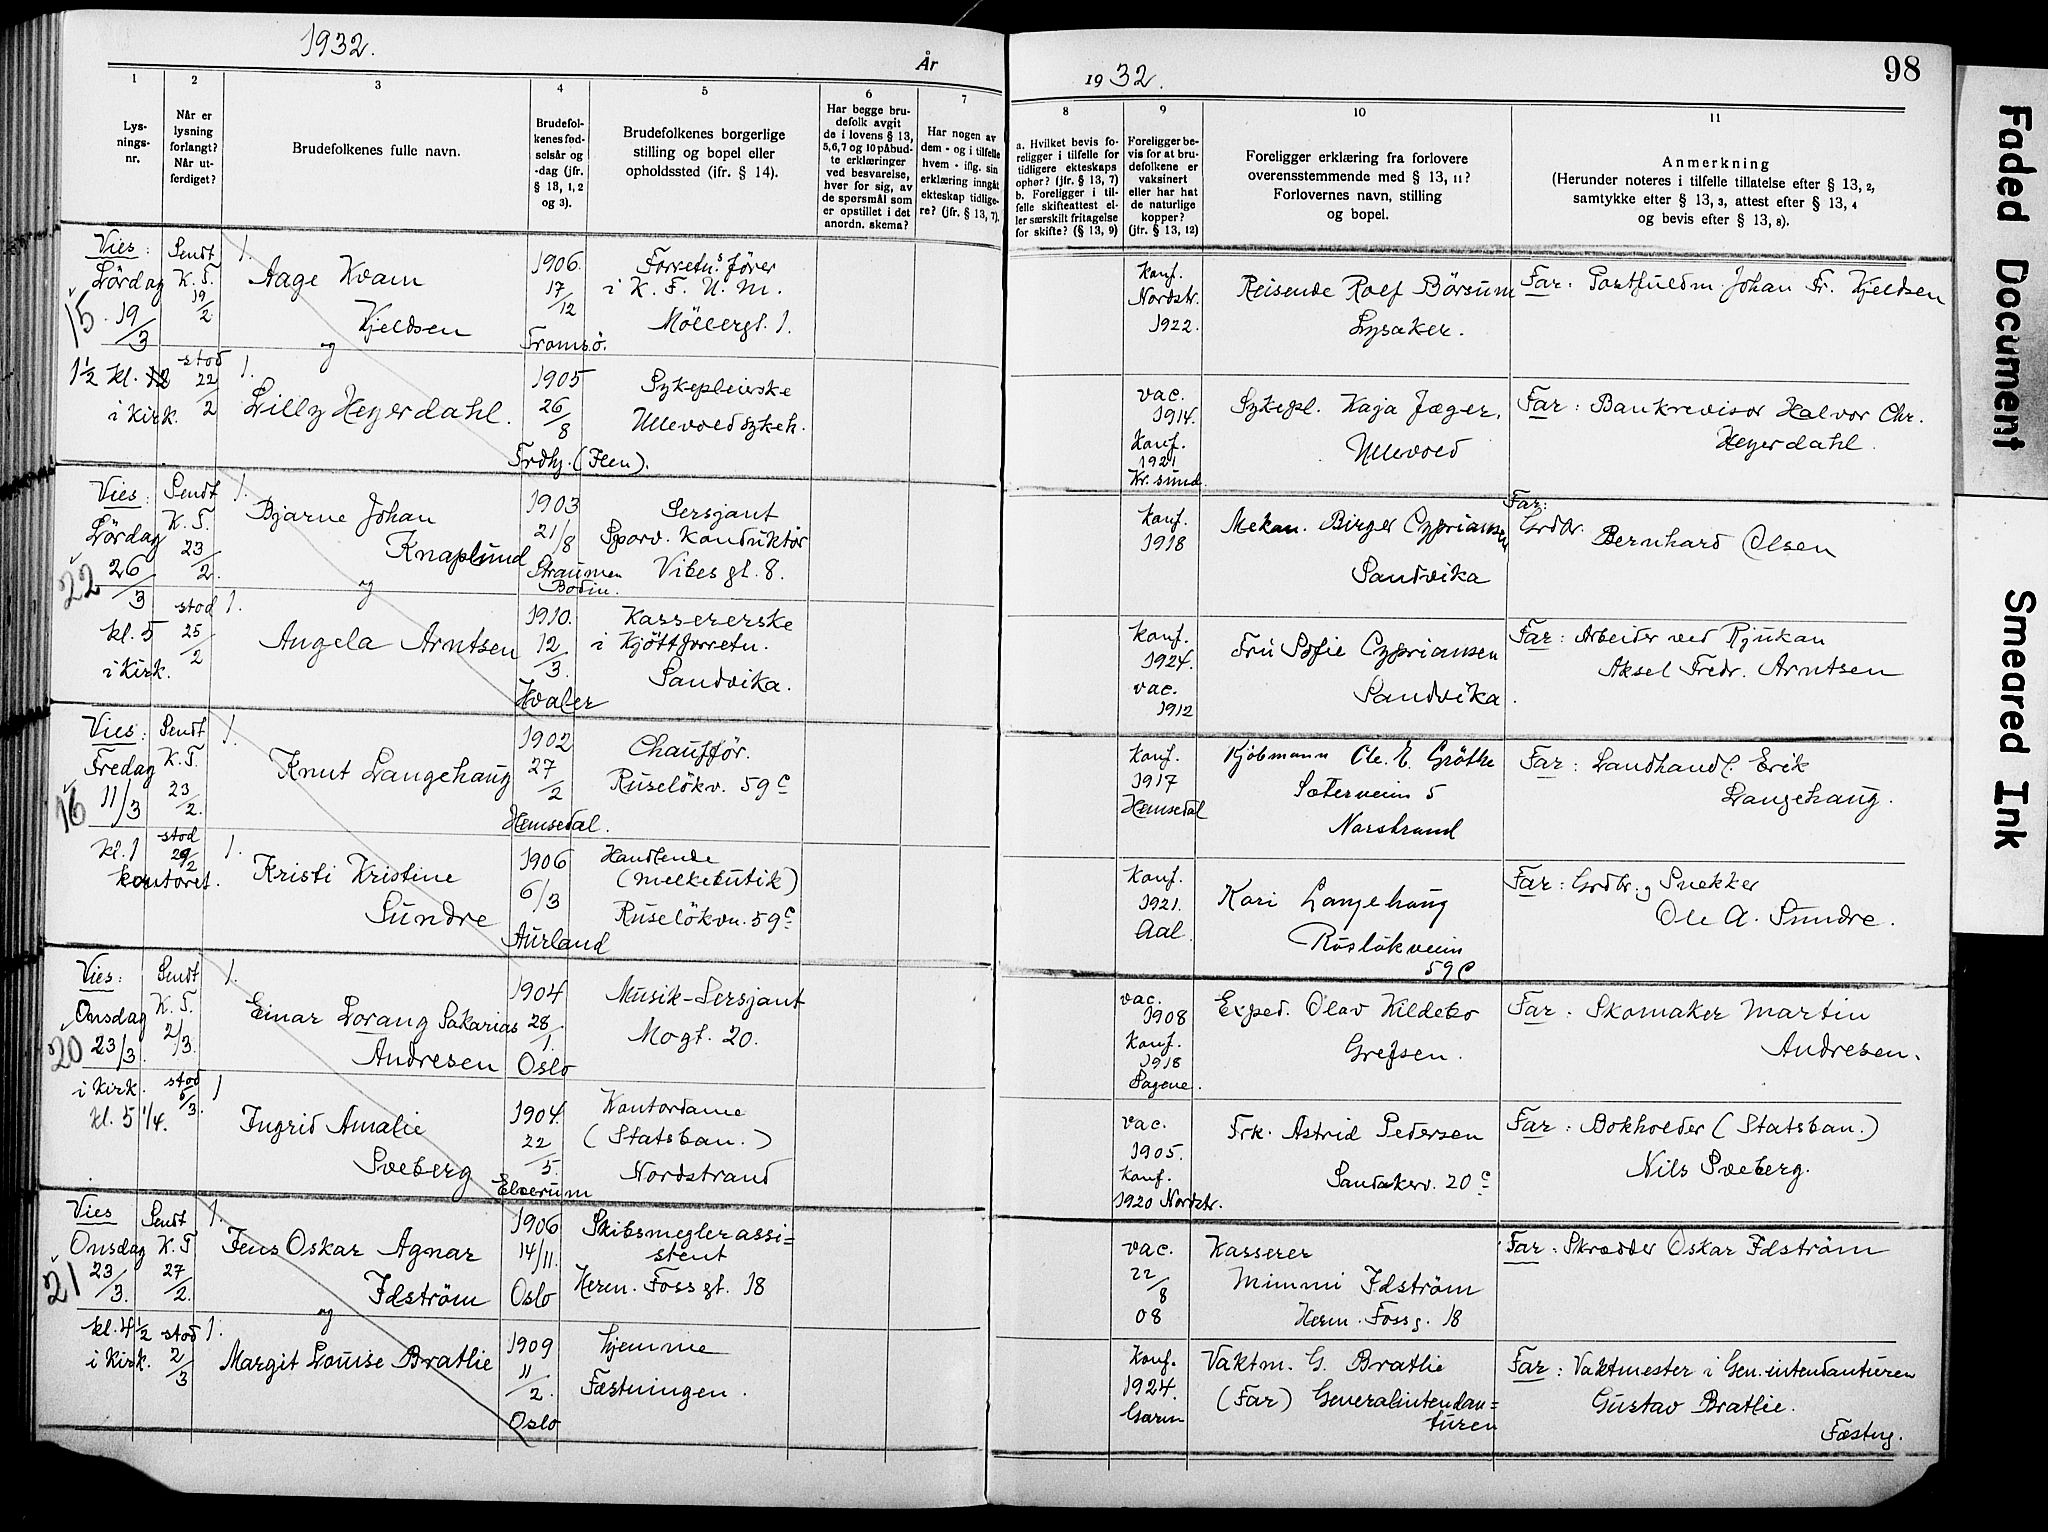 1932.
År
1
2
3
4
5
6
7
Lys-
nings-
nr.
Når er
lysning
forlangt?
Når ut-
ferdiget?
Brudefolkenes fulle navn.
Brudefol-
kenes fød-
selsår og
-dag (jfr.
§ 13, 1, 2
og 3).
Brudefolkenes borgerlige
stilling og bopel eller
opholdssted (ifr. § 14).
Har begge bru-
defolk avgit
de i lovens § 13,
5,6,7 og 10 påbud-
te erklæringer
ved besvarelse,
hver for sig, av
de spørsmål som
er opstillet i det
anordn. skema?
Har nogen av
dem - og i tilfelle
hvem - iflg. sin
erklæring inngåt
ekteskap tidlige-
re? (jfr. § 13, 7).
Vies:
Lördag
15. 19/3
1½ kl. 12
i Kirk.
Sendt
K. T.
19/2
stod
22/2
1.
Aage Kvam
Kjeldsen
og
1.
Lilly Heyerdahl.
1906.
17/12
Tromsö.
1905
26/8
Trdhj. (Ilen).
Forretn.s förer
i K. F. U. M.
Möllergt. 1.
Sykepleierske
Ullevold sykeh.
Vies:
Lördag
22 26/3
kl. 5
i Kirk.
Sendt
K. T.
23/2.
stod
25/2
1.
Bjarne Johan
Knaplund
og
1.
Angela Arntsen
1903
21/8
Straumen
Bodin.
1910.
12/3.
Hvaler
Sersjant
Sporv. Konduktör
Vibes gt. 8.
Kassererske
i Kjöttforretn.
Sandvika.
Vies:
Fredag
16 11/3
kl. 1
kontoret.
Sendt
K. T.
23/2.
stod
29/2
1.
Knut Langehaug
1.
Kristi Kristine
Sundre
1902
27/2
Hemsedal.
1906
6/3
Aurland
Chaufför.
Ruselökv. 59 c
Handlende
(melkebutik)
Ruselökvn. 59 c
Vies:
Onsdag
20 23/3.
i Kirk.
kl. 5 1/4.
Sendt
K. T.
2/3.
stod
5/3.
1.
Einar Lorang Sakarias
Andresen
1
Ingrid Amalie
Sveberg
1904
28/1.
Oslo
1904.
22/5.
Elverum
Musik-Sersjant
Mogt. 20.
Kontordame
(Statsban.)
Nordstrand
Vies
Onsdag
21 23/3.
kl. 4 ½
i Kirk.
Sendt
K. T
27/2.
stod
2/3
1.
Jens Oskar Agnar
Idström
og
1.
Margit Louise Bratlie
1906
14/11.
Oslo
1909
11/2.
Oslo
Skibsmeglerassi=
stent
Herm. Foss gt. 18
hjemme
Fæstningen.
1932.
98
8
9
10
11
a. Hvilket bevis fo-
religger i tilfelle for
tidligere ekteskaps
ophør? (jfr. § 13, 7)
b. Foreligger i til-
felle skifteattest el-
ler særskilt fritagelse
for skifte? (§ 13, 9)
Foreligger be-
vis for at bru-
defolkene er
vaksinert
eller har hat
de naturlige
kopper?
(jfr. § 13, 12)
Foreligger erklæring fra forlovere
overensstemmende med § 13, 11?
Forlovernes navn, stilling
og bopel.
Anmerkning
(Herunder noteres i tilfelle tillatelse efter § 13, 2,
samtykke efter § 13, 3, attest efter § 13, 4
og bevis efter § 13, 8).
Konf.
Nordstr.
1922.
Reisende Rolf Börsum
Lysaker.
Far: Postfuldm. Johan Fr. Kjeldsen
vac.
1914.
Konf.
1921
Kr. sund.
Sykepl. Kaja Jæger,
Ullevold
Far: Bankrevisor Halvor Chr.
Heyerdahl.
Konf.
1918
Mekan. Birger Cypriansen
Sandvika
Far:
Grdbr. Bernhard Olsen
Konf.
1924.
vac.
1912
Fru Sofie Cypriansen
Sandvika.
Far: Arbeider ved Rjukan
Aksel Fredr. Arntsen
Konf.
1917
Hemsedal
Kjöbmann Ole. E. Gröthe
Sæterveien 5
Norstrand
Far: Landhandl. Erik
Langehaug.
Konf.
1921.
Aal.
Kari Langehaug
Rüslökveien
59 C
Far: Grdbr. og Snekker
Ole A. Sundre.
vac.
1908
Konf.
1918
Sagene.
Exped. Olav Kildebo
Grefsen.
Far: Skomaker Martin
Andresen.
vac.
1905.
Konf.
1920 Nordstr.
Frk. Astrid Pedersen
Sandakerv. 20 c
Far: Bokholder (Statsban.)
Nils Sveberg.
vac.
22/8
08
Kasserer
Mimmi Idström
Herm. Foss g. 18
Far: Skrædder Oskar Idström
Konf.
1924.
Garn
Vaktm. G. Bratlie
(Far) Generalintendan=
turen
Far: Vaktmester i Gen.intendanturen
Gustav Bratlie.
Fæstng.
Faded Document
Smeared Ink